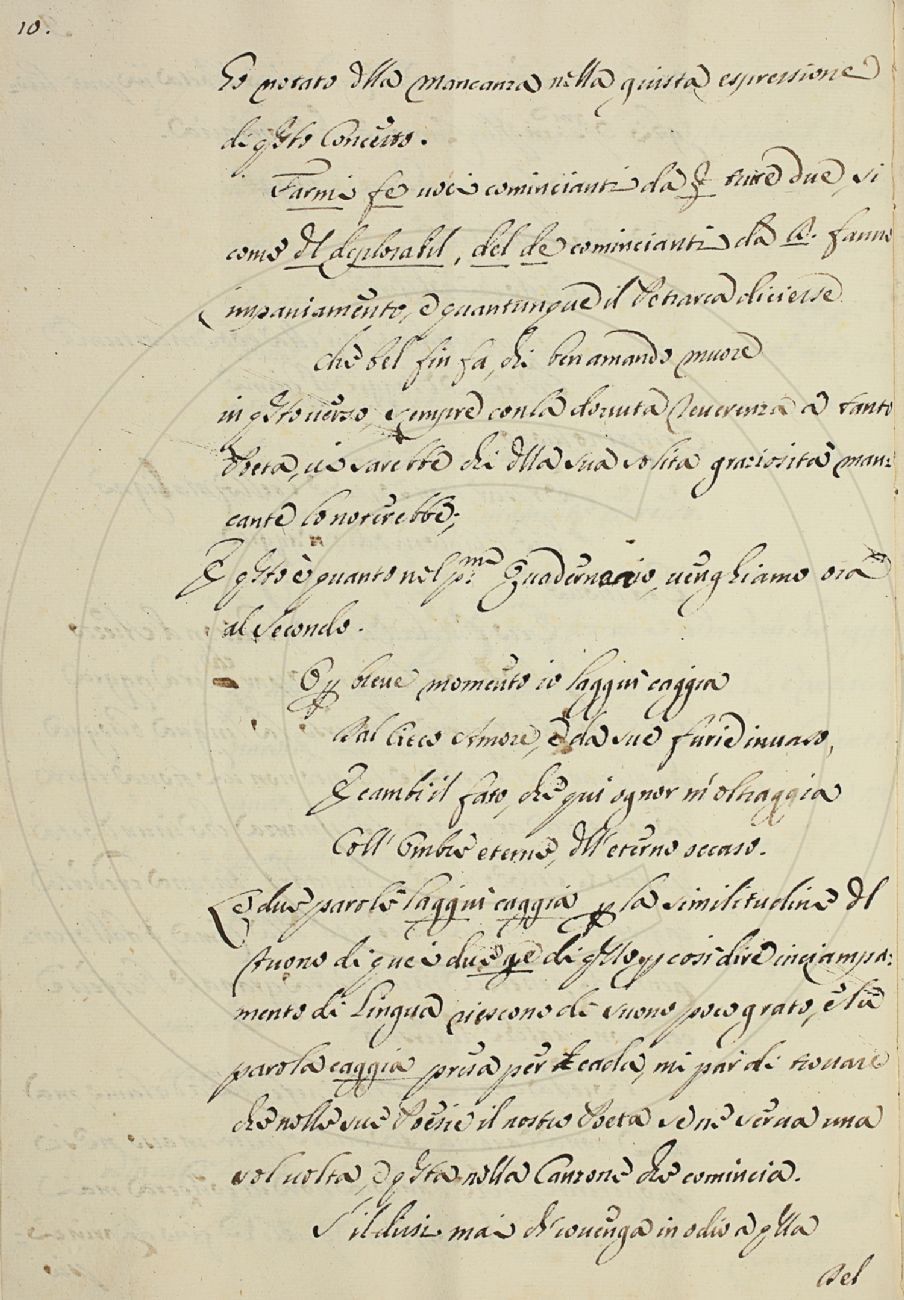 10.
Ho notato dlla mancanza nella giusta espressione
di qsto Concetto.
Farmi fe voci comincianti da F tutte due, si
come dl deplorabil, del de comincianti da D. fanno
impaniamento, e quantunque il Petrarca dicesse
che bel fin fa, chi ben amando muore
in qsto verso, sempre con la dovuta reverenza a tanto
Poeta, vi sarebbe chi dlla sua solita graziosità man:
cante lo noterebbe;
E qsto è quanto nel pmo Quadernario, venghiamo ora
al secondo.
O p breve momento io laggiù caggia
Dal Cieco Amore, e da sue furie invaso,
E cambi il fato, che qui ognor m'oltraggia
Coll' Ombre eterne, dll' eterno occaso.
Le due parole laggiù caggia p la similitudine dl
suono di quei due ge di qsto p così dire inciampa:
mento di Lingua riescono di suono poco grato, e la
parola caggia presa per cada, mi par di trovare
che nelle sue Poesie il nostro Poeta se ne serva una
sol volta, e qsta nella Canzone che comincia.
S'il dissi mai ch'io venga in odio a qlla
Del